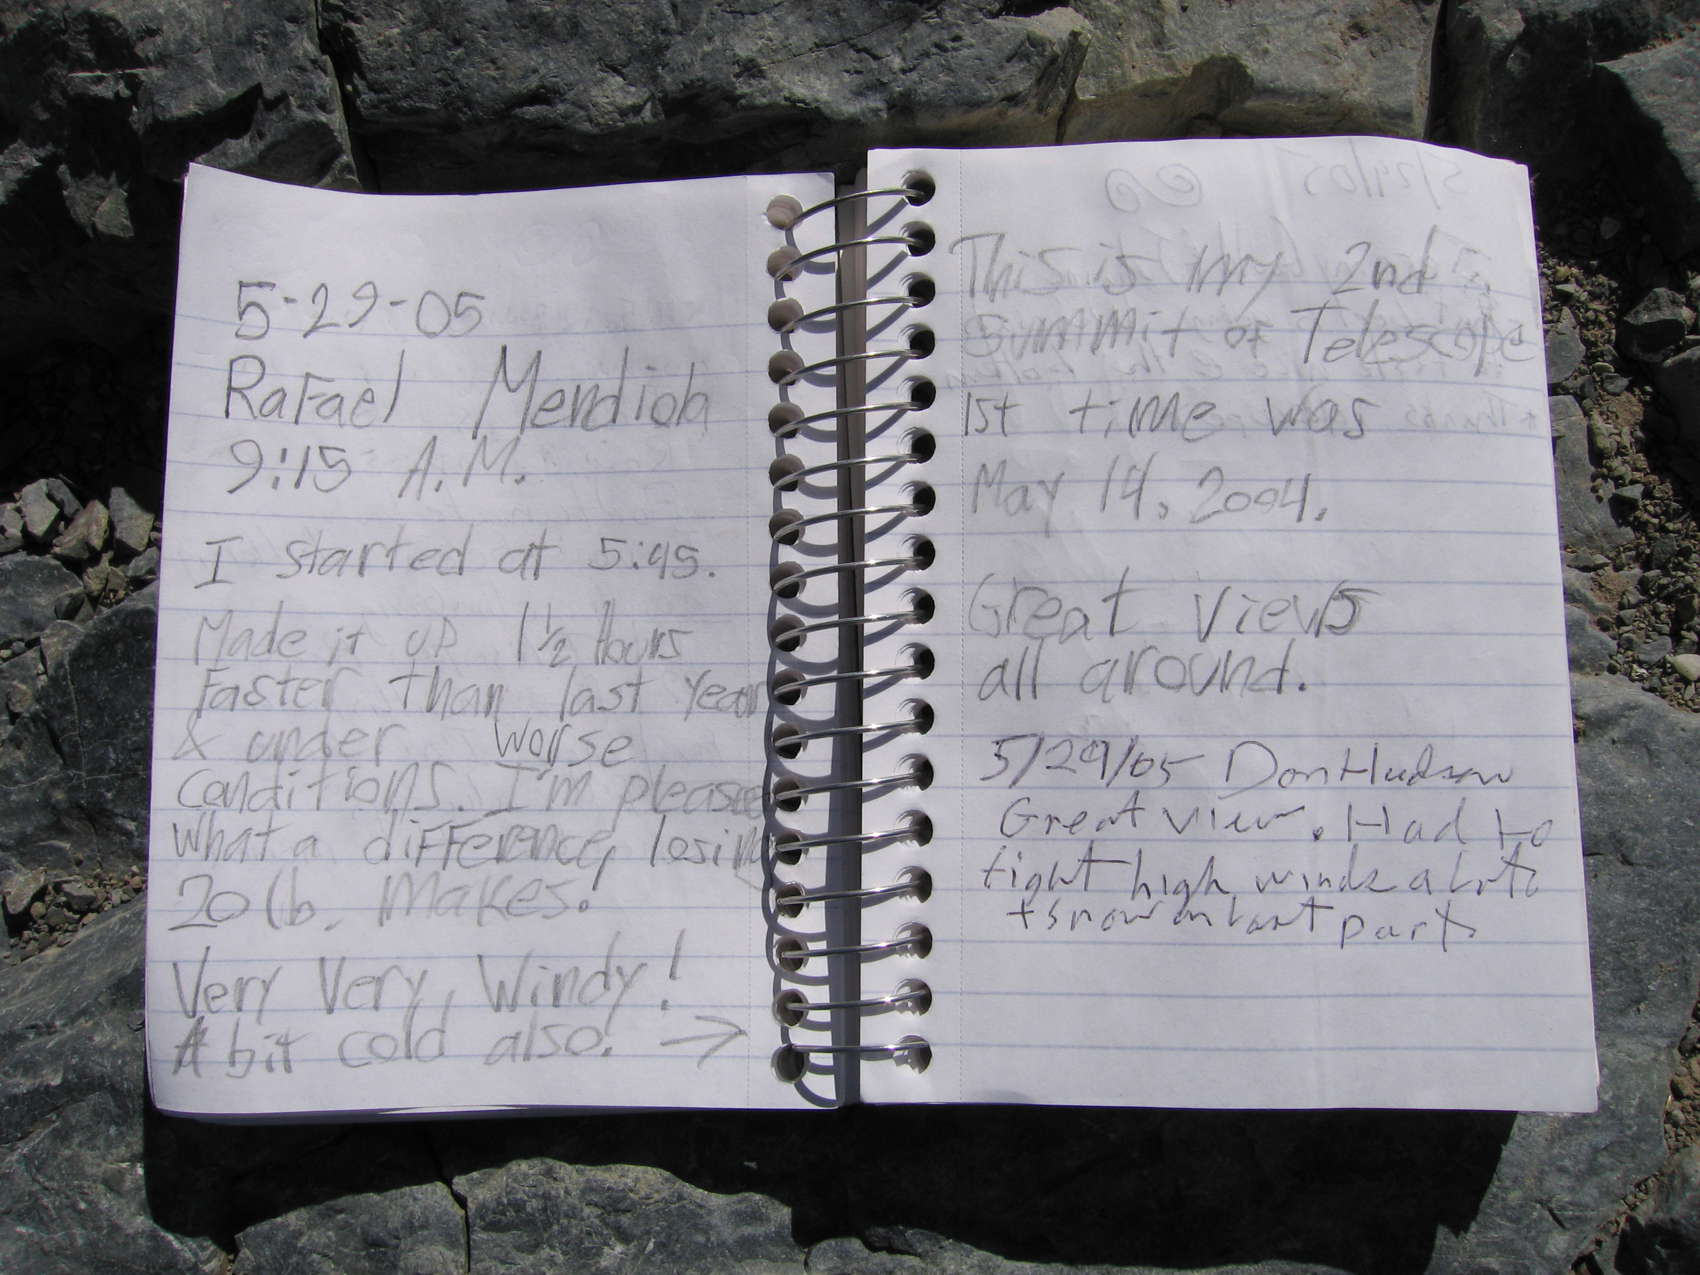 5-29-05
Rafael Mendiola
9:15 A.M.
I started at 5:45.
Made it up 1 1/2 Hours
Faster than last year
& under worse
conditions. I'm pleased
What a difference, losing
20 lb. makes.
Very Very, Windy!
A bit cold also! →
This is my 2nd
Summit of Telescope
1st time was
May 14, 2004.
Great views
all around.
5/29/05 Don Hudson
Great view. Had to
fight high winds a lot
+ snow on last part